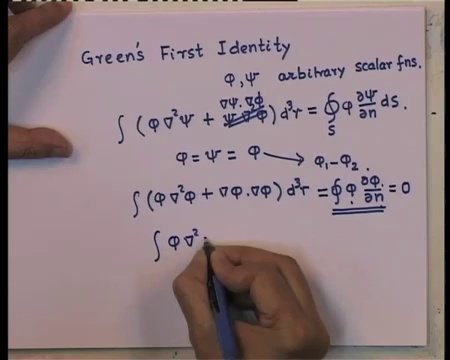 Green's First Identity
φ, ψ arbitrary scalar fns.
∇ψ.∇φ
∫ (φ∇²ψ + ψ∇²φ) d³r = ∮ φ ∂ψ/∂n ds.
S
φ = ψ = φ → φ₁-φ₂.
∫ (φ∇²φ + ∇φ.∇φ) d³r = ∮ φ ∂φ/∂n = 0
∫ φ∇²